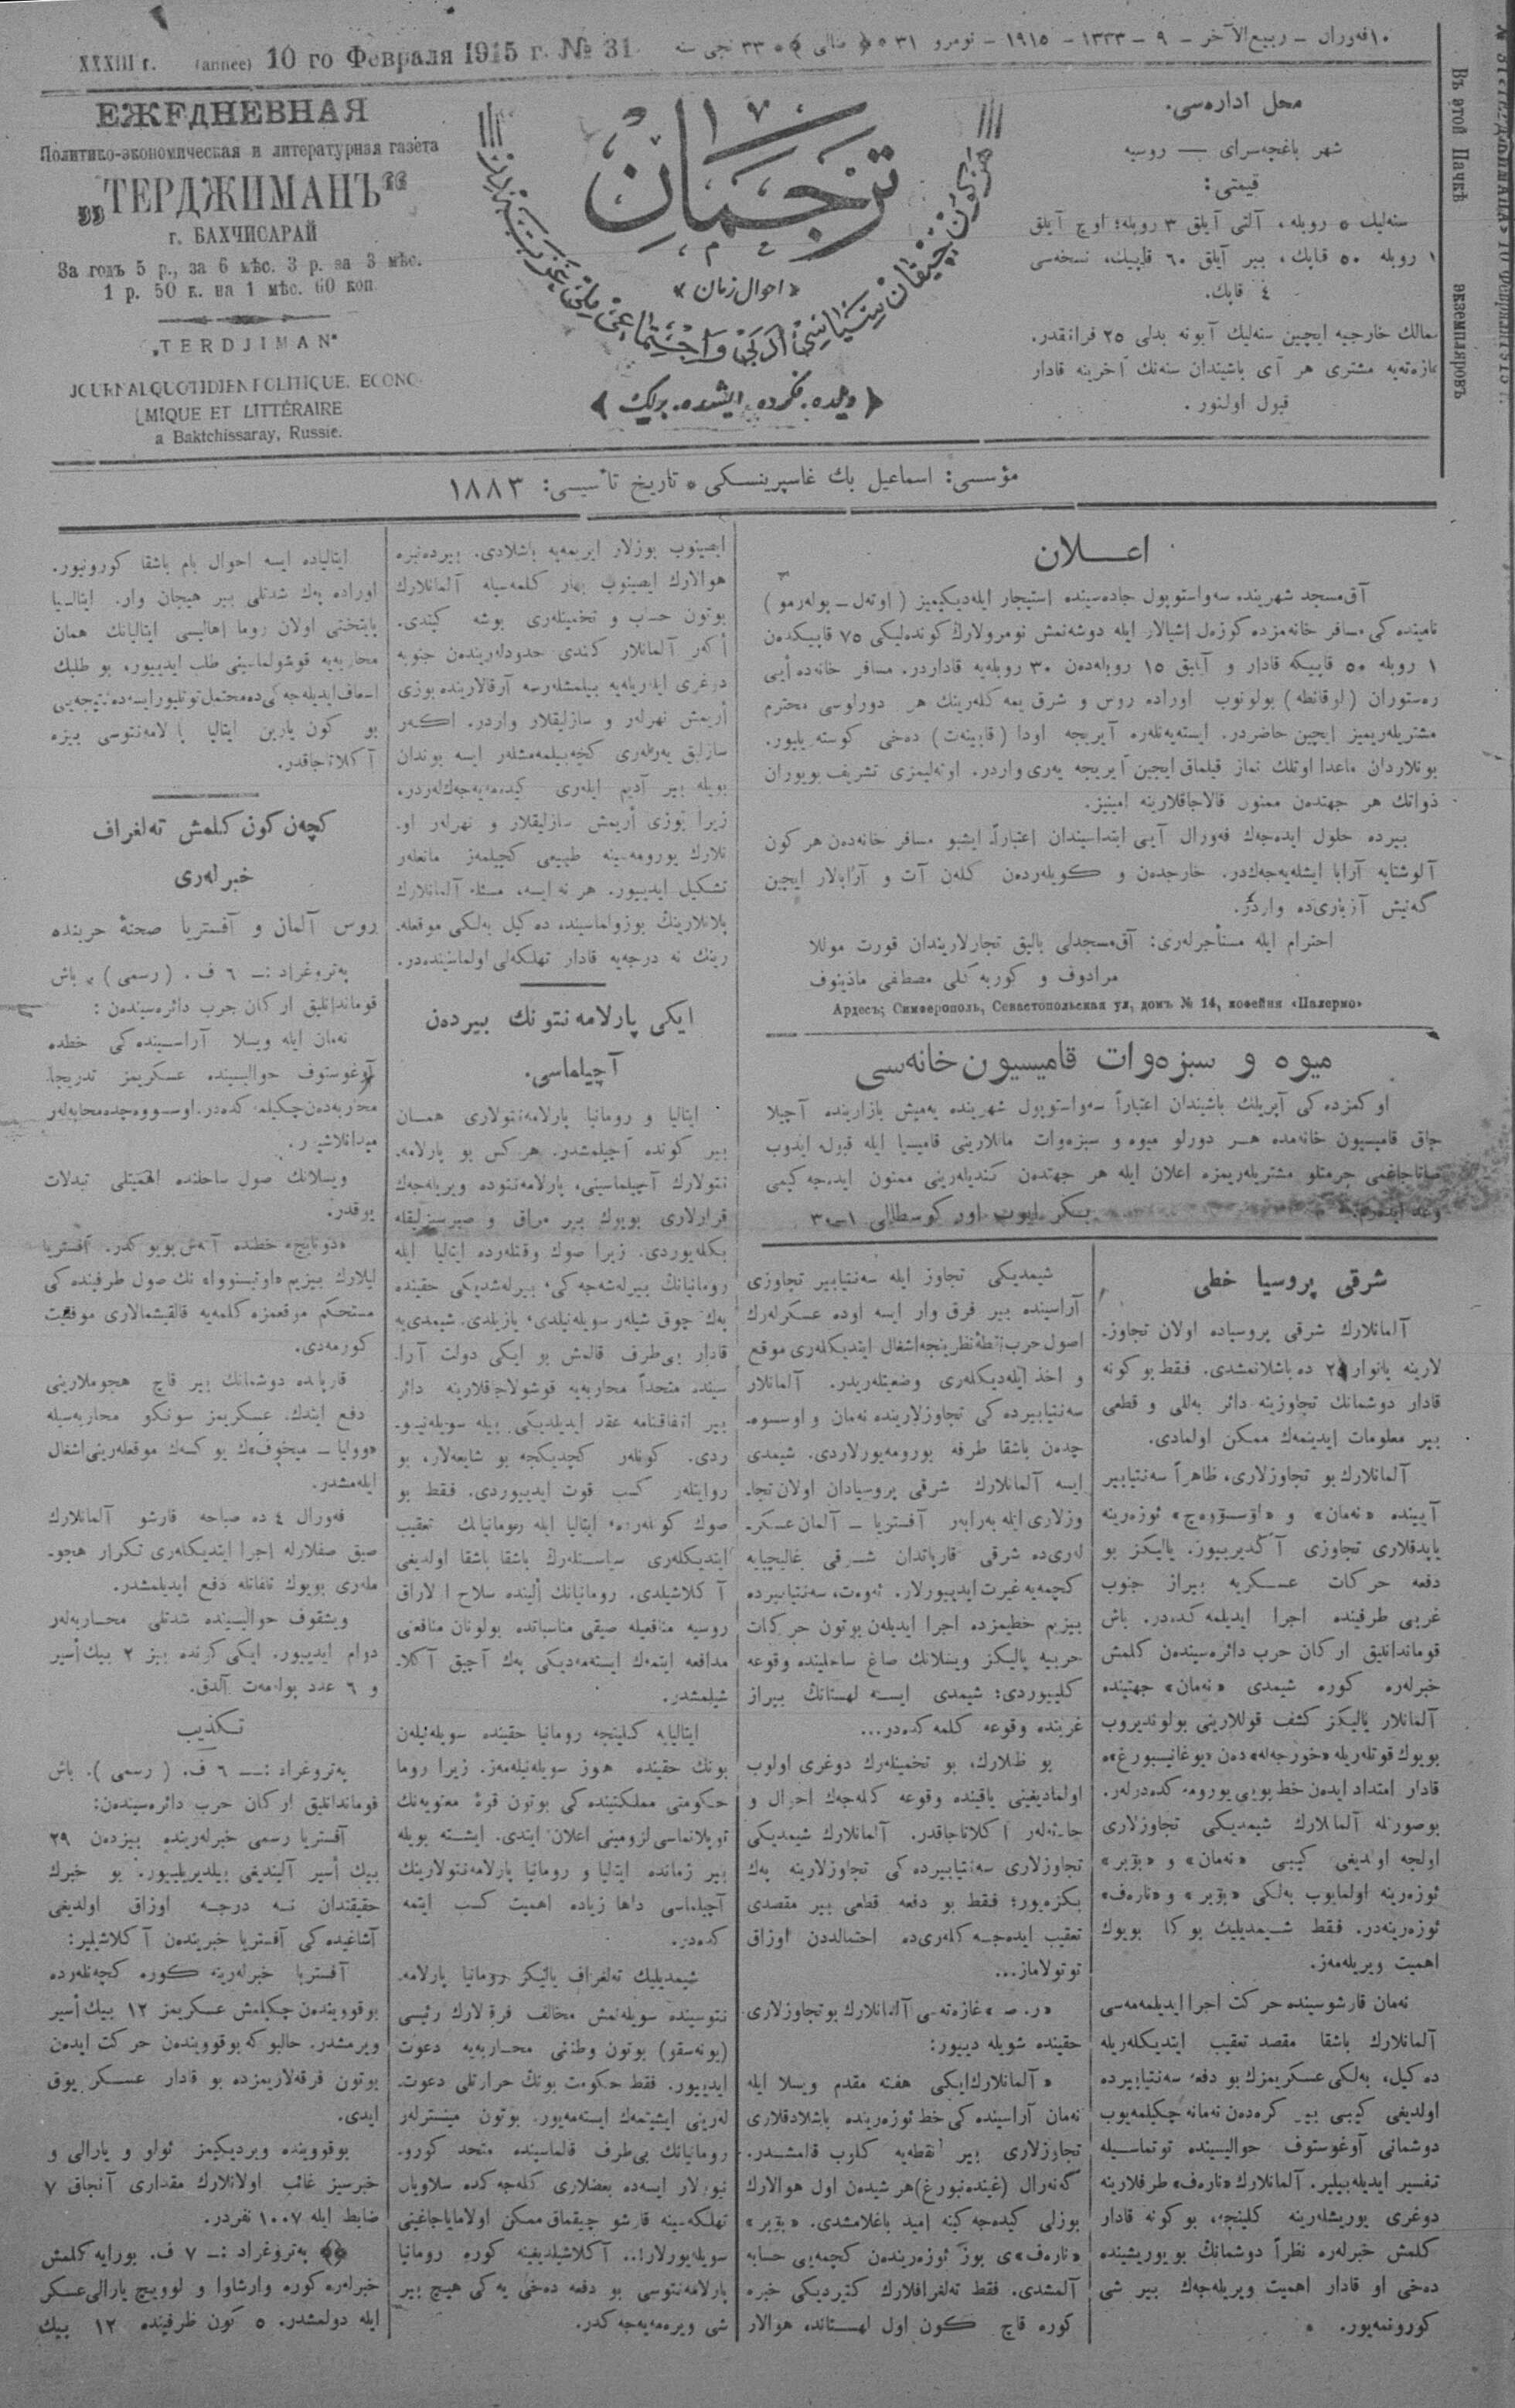 XXXIII г. (annee) 10 го Февраля 1915 г. № 31
١٠ فەورال – ربيع الآخر – ٩ – ١٣٣٣ – ١٩١٥ – نومرو ٣١ ﴿ صالی ﴾ ٣٣ نجی سنه
ЕЖЕДНЕВНАЯ
Политико-экономическая и литературная газета
„ТЕРДЖИМАНЪ“
г. БАХЧИСАРАЙ
За годъ 5 р., за 6 мѣс. 3 р. за 3 мѣс.
1 р. 50 к. на 1 мѣс. 60 коп.
„TERDJIMAN“
JOURNAL QUOTIDIEN POLITIQUE, ECONO-
MIQUE ET LITTÉRAIRE
a Baktchissaray, Russie.
ترجمان
«احوال زمان»
﴿ ديلده، فكرده، ايشده، برلك ﴾
محل اداره‌سی.
شهر باغچه‌سرای — روسيه
قيمتی:
سنه‌ليك ٥ روبله، آلتی آيلق ٣ روبله؛ اوچ آيلق
١ روبله ٥٠ قاپك، بير آيلق ٦٠ قاپيك، نسخه‌سی
٤ قاپك.
ممالك خارجيه ايچين سنه‌ليك آبونه بدلی ٢٥ فرانقدر.
غازه‌ته‌يه مشتری هر آی باشيندان سنه‌نك آخرينه قادار
قبول اولنور.
Въ этой Пачкѣ экземпляровъ
مؤسسی: اسماعيل بك غاسپرينسكی * تاريخ تأسيسی: ١٨٨٣
اعـــلان
آق‌مسجد شهرينده سه‌واستوپول جاده‌سينده استيجار ايله‌ديكيميز (اوته‌ل – پولەرمو)
نامينده كی مسافر خانه‌مزده كوزه‌ل اشيالار ايله دوشه‌نمش نومرولارڭ كونده‌ليكی ٧٥ قاپيكدن
١ روبله ٥٠ قاپيكه قادار و آيليق ١٥ روبله‌دن ٣٠ روبله‌يه قاداردر. مسافر خانه‌ده أيی
ره‌ستوران (لوقانطه) بولونوب اوراده روس و شرق يمه كله‌رينك هر دورلوسی محترم
مشتريله‌ريميز ايچين حاضردر. ايسته‌يه‌نله‌ره آيريجه اودا (قابينه‌ت) ده‌خی كوسته‌ريليور.
بونلاردان ماعدا اوتلك نماز قيلماق ايچين آيريجه يه‌ری واردر. اوته‌ليمزی تشريف بويوران
ذواتك هر جهتدن ممنون قالاجاقلارينه امينيز.
بيرده حلول ايده‌جه‌ك فه‌ورال آيی ابتداسيندان اعتباراً ايشبو مسافر خانه‌دن هر كون
آلوشتايه آرابا ايشله‌يه‌جه‌كدر. خارجدن و كويله‌ردن كلەن آت و آرابالار ايچين
كه‌نيش آزباری‌ده واردر.
احترام ايله مستأجرله‌ری: آق‌مسجدلی باليق تجارلاريندان قورت موللا
مرادوف و كوربه كلی مصطفی
Ардесъ; Симферополь, Севастопольская ул, домъ № 14, кофейня «Палермо»
ميوه و سبزه‌وات قاميسيون خانه‌سی
اوكمزده كی آپريلك باشيندان اعتباراً سه‌واستوپول شهرينده يه‌ميش بازارينده آچيلا
جاق قاميسيون خانه‌مده هر دورلو ميوه و سبزه‌وات ماللارينی قاميسيا ايله قبول ايدوب
صاتاجاغمی حرمتلو مشتريله‌ريمزه اعلان ايله هر جهتدن كنديله‌رينی ممنون ايده‌جه كيمی
وعد ايده‌رم. بكر ايوب اور كوسطالی ١–٣٠
شرقی پروسيا خطی
آلمانلارك شرقی پروسياده اولان تجاوز-
لارينه يانوار ٢٥ ده باشلانمشدی. فقط بو كونه
قادار دوشمانك تجاوزينه دائر به‌للی و قطعی
بير معلومات ايدينمه‌ك ممكن اولمادی.
آلمانلارك بو تجاوزلاری، ظاهراً سه‌نتيابير
آيينده «نه‌مان» و «اوسسووه‌چ» ئوزه‌رينه
ياپدقلاری تجاوزی آكديرييور. ياليكز بو
دفعه حركات عسكريه بيراز جنوب
غربی طرفينده اجرا ايديلمه كده‌در. باش
قوماندانليق اركان حرب دائره‌سيندن كلمش
خبرله‌ره كوره شيمدی «نه‌مان» جهتينده
آلمانلار ياليكز كشف قوللارينی بولونديروب
بويوك قوتله‌ريله «خورجه‌له» دن «يوغانيسبورغ» ه
قادار امتداد ايدەن خط بويی يورومه كده‌درلەر.
بوصورتله آلمانلارك شيمديكی تجاوزلاری
اولجه اولديغی كيبی «نه‌مان» و «بۆبر»
ئوزه‌رينه اولمايوب به‌لكی «بۆبر» و «ناره‌ف»
ئوزه‌رينه‌در. فقط شيمديليك بوكا بويوك
اهميت ويريله‌مه‌ز.
نه‌مان قارشوسينده حركت اجرا ايديلمه‌مه‌سی
آلمانلارك باشقا مقصد تعقيب ايتديكله‌ريله
ده‌كيل، به‌لكی عسكريمزك بو دفعه سه‌نتيابيرده
اولديغی كيبی بير كره‌دن نه‌مانه چكيلمه‌يوب
دوشمانی آوغوستوف حواليسينده توتماسيله
تفسير ايديله‌بيلير. آلمانلارك «ناره‌ف» طرفلارينه
دوغری يوريشله‌رينه كلينجه، بو كونه قادار
كلمش خبرله‌ره نظراً دوشمانك بو يوريشينده
ده‌خی او قادار اهميت ويريله‌جه‌ك بير شی
كورونمه‌يور.
شيمديكی تجاوز ايله سه‌نتيابير تجاوزی
آراسينده بير فرق وار ايسه اوده عسكرله‌رك
اصول حرب نقطۀ نظرينجه اشغال ايتديكله‌ری موقع
و اخذ ايله‌ديكله‌ری وضعيتله‌ريدر. آلمانلار
سه‌نتيابيرده كی تجاوزلارينده نه‌مان و اوسسوه-
چدەن باشقا طرفه يورومه‌يورلاردی. شيمدی
ايسه آلمانلارك شرقی پروسيادان اولان تجا-
وزلاری ايله به‌رابەر آفستريا – آلمان عسكر-
له‌ری‌ده شرقی قارپاتدان شرقی غاليچيايه
كچمه‌يه غيرت ايدييورلار. ئه‌وه‌ت، سه‌نتيابيرده
بيزيم خطيمزده اجرا ايديلەن بوتون حركات
حربيه ياليكز ويسلانك صاغ ساحلينده وقوعه
كلييوردی؛ شيمدی ايسه لهستانك بيراز
غربنده وقوعه كلمه كده‌در...
بو ظنلارك، بو تخمينله‌رك دوغری اولوب
اولماديغينی ياقينده وقوعه كله‌جه‌ك احوال و
حادثه‌لەر آكلاتاجاقدر. آلمانلارك شيمديكی
تجاوزلاری سه‌نتيابيرده كی تجاوزلارينه پك
بكزه‌يور؛ فقط بو دفعه قطعی بير مقصدی
تعقيب ايده‌جه كله‌ری‌ده احتمالدن اوزاق
توتولاماز...
«ر. ص» غازه‌ته‌سی آلمانلارك بو تجاوزلاری
حقينده شويله دييور:
«آلمانلارك ايكی هفته مقدم ويسلا ايله
نه‌مان آراسينده كی خط ئوزه‌رينده باشلادقلاری
تجاوزلاری بير نقطه‌يه كلوب قالمشدر.
كه‌نه‌رال (غينده‌نبورغ) هر شيدن اول هوالارك
بوزلی كيده‌جه كينه اميد باغلامشدی. «بۆبر»
«ناره‌ف» ی بوز ئوزه‌ريندەن كچمه‌يی حسابه
آلمشدی. فقط ته‌لغرافلارك كتيرديكی خبره
كوره قاچ كون اول لهستانده هوالار
ايصينوب بوزلار ايريمه‌يه باشلادی. بيرده‌نبره
هوالارك ايصينوب بهار كلمه‌سيله آلمانلارك
بوتون حساب و تخمينله‌ری بوشه كيتدی.
أكەر آلمانلار كندی حدودله‌ريندەن جنوبه
دوغری ايله‌ريله‌يه بيلمشلەرسه آرقالارينده بوزی
أريمش نهرلەر و سازليقلار واردر. اكەر
سازليق يه‌رله‌ری كچه‌بيلمه‌مشلەر ايسه بوندان
بويله بير آديم ايله‌ری كيده‌مه‌يه‌جه‌كلەردر.
زيرا بوزی أريمش سازليقلار و نهرلەر او-
نلارك يورومه‌سينه طبيعی كچيلمه‌ز مانعه‌لەر
تشكيل ايدييور. هر نه ايسه، مسئله آلمانلارك
پلانلارينك بوزولماسينده ده‌كيل به‌لكی موقعله-
رينك نه درجه‌يه قادار تهلكه‌لی اولماسينده‌در.
ايكی پارلامه‌نتونك بيردەن
آچيلماسی.
ايتاليا و رومانيا پارلامه‌نتولاری همان
بير كونده آچيلمشدر. هركس بو پارلامه-
نتولارك آچيلماسينی، پارلامه‌نتوده ويريله‌جه‌ك
قرارلاری بويوك بير مراق و صبرسزليقله
بكله‌يوردی. زيرا صوك وقتله‌رده ايتاليا ايله
رومانيانك بيرله‌شه‌جه كی، بيرله‌شديكی حقينده
په‌ك چوق شيلەر سويله‌نيلدی، يازيلدی. شيمدی‌يه
قادار بی‌طرف قالمش بو ايكی دولت آرا-
سينده متحداً محاربه‌يه قوشولاجاقلارينه دائر
بير اتفاقنامه عقد ايديلديكی بيله سويله‌نييو-
ردی. كونلەر كچديكجه بو شايعه‌لار، بو
روايتلەر كسب قوت ايدييوردی. فقط بو
صوك كونله‌رده ايتاليا ايله رومانيانك تعقيب
ايتديكله‌ری سياستله‌رك باشقا باشقا اولديغی
آكلاشيلدی. رومانيانك ألينده سلاح اولاراق
روسيه منافعيله صيقی مناسباتده بولونان منافعی
مدافعه ايتمه‌ك ايسته‌مه‌ديكی په‌ك آچيق آكلا-
شيلمشدر.
ايتاليايه كلينجه رومانيا حقينده سويله‌نيلەن
بونك حقينده هنوز سويله‌نيله‌مه‌ز. زيرا روما
حكومتی مملكتينده كی بوتون قوۀ معنويه‌نك
توپلانماسی لزومينی اعلان ايتدی. ايشته بويله
بير زمانده ايتاليا و رومانيا پارلامه‌نتولارينك
آچيلماسی داها زياده اهميت كسب ايتمه
كده‌در.
شيمديليك ته‌لغراف ياليكز رومانيا پارلامه-
نتوسينده سويله‌نمش مخالف فرقه‌لارك رئيسی
(يونه‌سقو) بوتون وطننی محاربه‌يه دعوت
ايدييور. فقط حكومت بونك حرارتلی دعوت-
له‌رينی ايشيتمه‌ك ايسته‌مه‌يور. بوتون مينسترلەر
رومانيانك بی‌طرف قالماسينده متحد كورو-
نيورلار ايسه‌ده بعضلاری كله‌جه كده سلاويان
تهلكه‌سينه قارشو چيقماق ممكن اولامایاجاغينی
سويله‌يورلار!.. آكلاشيلديغينه كوره رومانيا
پارلامه‌نتوسی بو دفعه ده‌خی يه‌كی هيچ بير
شی ويره‌مه‌يه‌جه كدر.
ايتالياده ايسه احوال بام باشقا كورونيور.
اوراده په‌ك شدتلی بير هيجان وار. ايتاليا
پايتختی اولان روما اهاليسی ايتاليانك همان
محاربه‌يه قوشولماسينی طلب ايدييور، بو طلبك
اسعاف ايديله‌جه كی‌ده محتمل توتليور ايسه‌ده نتيجه‌يی
بو كون يارين ايتاليا پارلامه‌نتوسی بيزه
آكلاتاجاقدر.
كچەن كون كلمش ته‌لغراف
خبرله‌ری
روس آلمان و آفستريا صحنۀ حربنده
په‌تروغراد :– ٦ ف. (رسمی) . باش
قوماندانليق اركان حرب دائره‌سيندەن :
نه‌مان ايله ويسلا آراسينده كی خطده
آوغوستوف حواليسينده عسكريمز تدريجاً
محاربه‌دن چكيلمه كده‌در. اوسسووه‌چده محابه‌لەر
ميدانلاشيور.
ويسلانك صول ساحلنده اهميتلی تبدلات
يوقدر.
«دونايچ» خطنده آتش بويوكدر. آفستريا
ليلارك بيزيم «اوتبستوواء» نك صول طرفينده كی
مستحكم موقعمزه كلمه‌يه قالقيشمالاری موفقيت
كورمه‌دی.
قارپاتده دوشمانك بير قاچ هجوملارينی
دفع ايتدك. عسكريمز سونكو محاربه‌سيله
«ووليا – ميخوف» ك يوكسه‌ك موقعله‌رينی اشغال
ايله‌مشدر.
فه‌ورال ٤ ده صباحه قارشو آلمانلارك
صيق صفلارله اجرا ايتديكله‌ری تكرار هجو-
مله‌ری بويوك تلفاتله دفع ايديلمشدر.
ويشقوف حواليسينده شدتلی محاربه‌لەر
دوام ايدييور. ايكی كونده بيز ٢ بيك أسير
و ٦ عدد پوله‌مه‌ت آلدق.
تكذيب
په‌تروغراد :— ٦ ف. (رسمی). باش
قوماندانليق اركان حرب دائره‌سيندەن:
آفستريا رسمی خبرله‌رينده بيزدەن ٢٩
بيك أسير آلينديغی بيلديريلييور. بو خبرك
حقيقتدان نه درجه اوزاق اولديغی
آشاغيده كی آفستريا خبريندەن آكلاشيلير:
آفستريا خبرله‌رينه كوره كچه‌نله‌رده
بوقوويندەن چكيلمش عسكريمز ١٢ بيك أسير
ويرمشدر. حالبوكه بوقوويندەن حركت ايدەن
بوتون فرقه‌لاريمزده بو قادار عسكر يوق
ايدی.
بوقووينده ويرديكيمز ئولو و يارالی و
خبرسيز غائب اولانلارك مقداری آنجاق ٧
ضابط ايله ١٠٠٧ نفردر.
په‌تروغراد :– ٧ ف. بورايه كلمش
خبرله‌ره كوره وارشاوا و لوويچ يارالی عسكر
ايله دولمشدر. ٥ كون ظرفينده ١٢ بيك